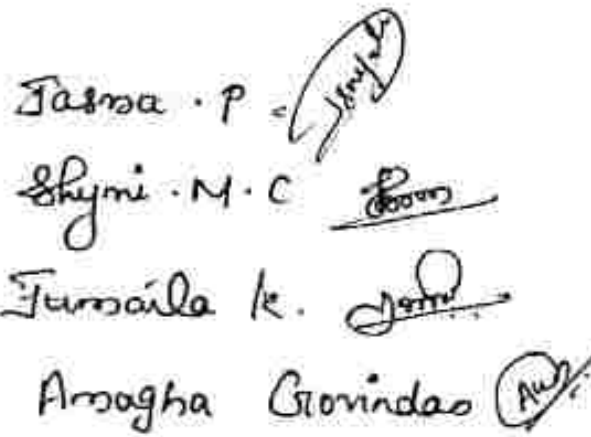 Jasna . P
Shyni . M . C
Jumaila K.
Anagha Govindas